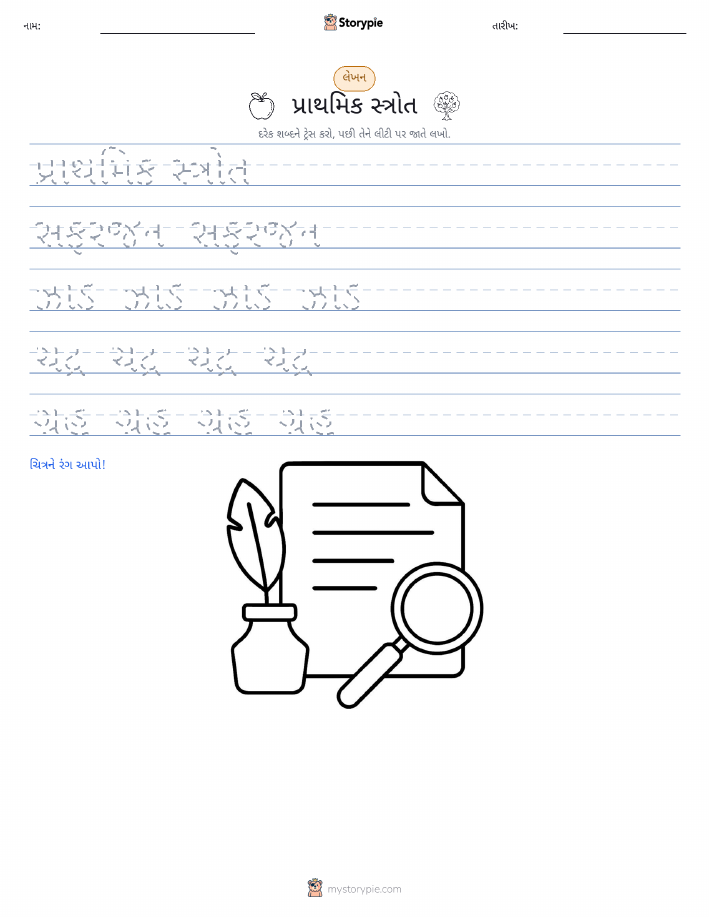 નામ:
Storypie
તારીખ:
લેખન
પ્રાથમિક સ્ત્રોત
દરેક શબ્દને ટ્રેસ કરો, પછી તેને લીટી પર જાતે લખો.
પ્રાથમિક સ્ત્રોત
સફરજન સફરજન
ઝાડ ઝાડ ઝાડ ઝાડ
ચંદ્ર ચંદ્ર ચંદ્ર ચંદ્ર
ગ્રહ ગ્રહ ગ્રહ ગ્રહ
ચિત્રને રંગ આપો!
mystorypie.com